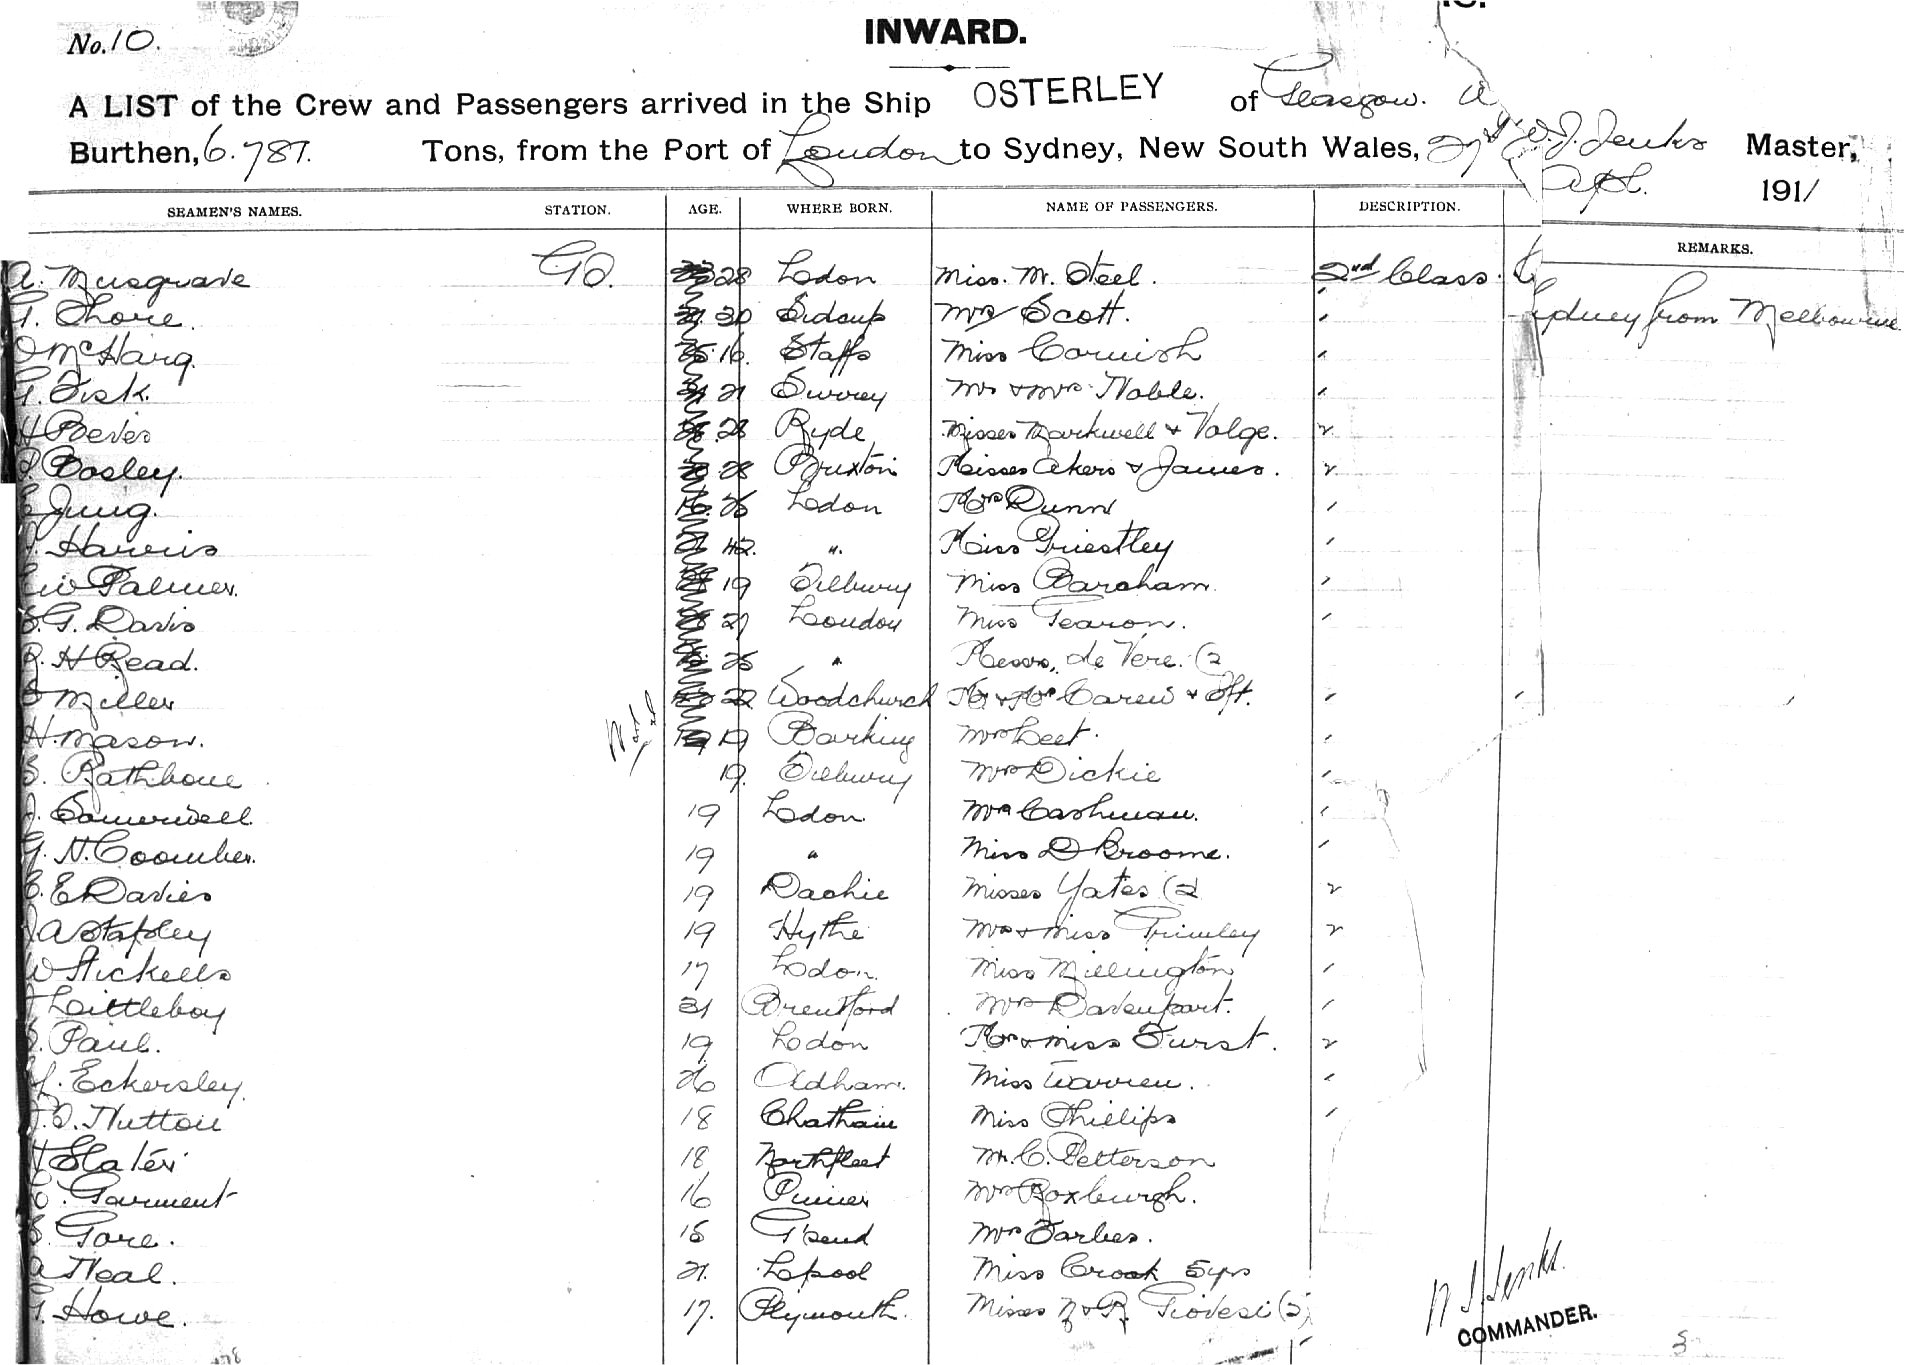 No. 10.
INWARD.
A LIST of the Crew and Passengers arrived in the Ship OSTERLEY of Glasgow.
Burthen, 6.787. Tons, from the Port of London to Sydney, New South Wales, Jenks Master,
191/
SEAMEN'S NAMES. STATION. AGE. WHERE BORN. NAME OF PASSENGERS. DESCRIPTION. REMARKS.
A. Musgrave 28 Ldon Miss. M. Steel. 2nd Class.
G. Shore. 30 Sidcup Mrs Scott. Sydney from Melbourne
McHarg. 16. Staffs Miss Cornish
G. Fisk. 21 Surrey Mr & Mrs Noble.
H Beves 28 Ryde Misses Markwell & Volge.
Bosley. 28 Brixton Misses Akers & James.
Jung. 26 Ldon Mrs Dunn
Harris 42. ". Miss Priestley
W Palmer. 19 Tilbury Miss Barcham.
G. Davis 21 London Miss Fearon.
R. H Read. 26 " Messrs. de Vere. (2
Miller 22 Woodchurch Mr & Mrs Carew & Ift.
H. Mason. 19 Barking Mrs Leet.
Rathbone 19. Tilbury Mrs Dickie
Somerwell. 19 Ldon. Mrs Cashman.
G. N. Coomber. 19 " Miss D Broome.
E Davies 19 Misses Yates (2
A Stapley 19 Hythe Mrs & Miss Grimley
W Stickells 17 Ldon. Miss Millington
Littleboy 31 Brentford Mrs Davenport.
Paul. 19 Ldon Mrs & Miss Furst.
Eckersley. 26 Oldham. Miss Warren.
Hutton 18 Chatham Miss Phillips
H Slater 18 Northfleet Mr. C. Petterson
Garment 16 Pinner Mrs Roxburgh.
Gore. 15 G'send Mrs Forbes.
A Neal. 21. L'pool Miss Crook 5yrs
G. Howe. 17. Plymouth. Misses
Jenks.
COMMANDER.